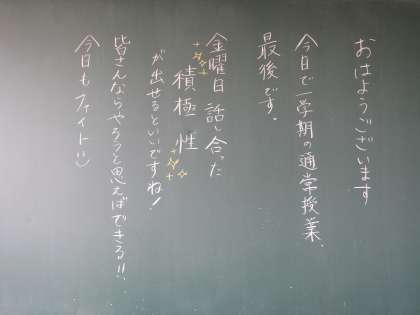 おはようございます
今日で一学期の通常授業、
最後です。
金曜日話し合った
積極性
が出せるといいですね!
皆さんならやろうと思えばできる!!
今日もファイト!:)